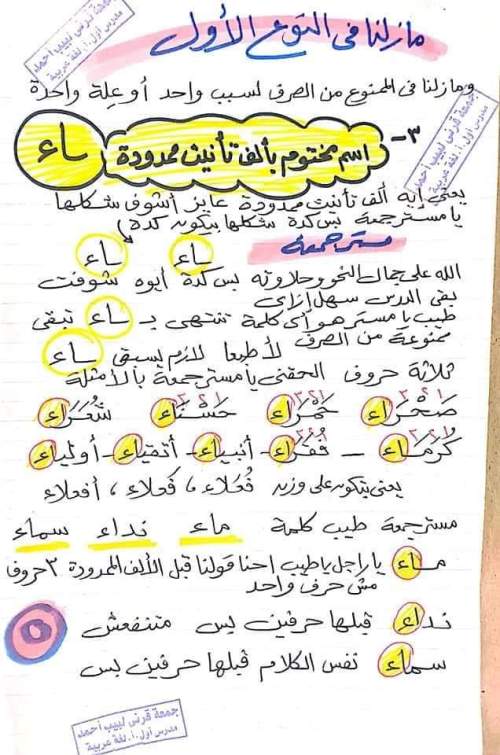 جمعة قرنى لبيب أحمد
مدرس أول.أ. لغة عربية
مازلنا فى النوع الأول
ومازلنا فى الممنوع من الصرف لسبب واحد أو علة واحدة
جمعة قرنى لبيب أحمد
مدرس أول.أ. لغة عربية
٣- اسم مختوم بألف تأنيث ممدودة ـاء
يعنى إيه ألف تأنيث ممدودة عايز أشوف شكلها
يا مستر جمعة بس كدة شكلها بيكون كدة
مستر جمعة
ـاء ـاء
الله على جمال النحو وحلاوته بس كدة أيوه شوفت
بقى الدرس سهل إزاى
طيب يا مستر هو أى كلمة تنتهى بـ ـاء تبقى
ممنوعة من الصرف لأ طبعا لازم يسبق ـاء
ثلاثة حروف الحقنى يا مستر جمعة بالأمثلة
صَحْرَاء حَمْرَاء حَسْنَاء شُعَرَاء
كُرَمَاء - فُقَرَاء - أنبياء - أتقياء - أولياء
يعنى بتكون على وزن فُعَلاء ، فَعلاء ، أفعلاء
مستر جمعة طيب كلمة ماء نداء سماء
مـاء يا راجل يا طيب احنا قولنا قبل الألف الممدودة ٣ حروف
مش حرف واحد
نداء قبلها حرفين بس متنفعش
سماء نفس الكلام قبلها حرفين بس
٥
جمعة قرنى لبيب أحمد
مدرس أول.أ. لغة عربية